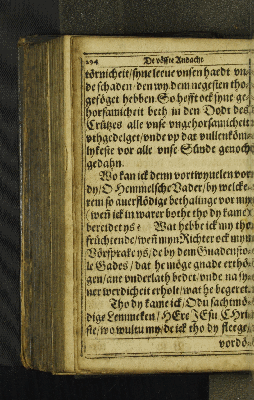 294 De vöffte Andacht
törnicheit / syne leeue vnsen haedt vn-
de schaden / den wy dem negesten tho-
gesöget hebben So hefft ock syne ge-
horsamicheit beth in den Dodt des
Crützes alle vnse vngehorsamicheit
vthgedelget / vnde vp dat vullenköm-
lykeste vor alle vnse Sünde genoch
gedahn.
Wo kan ick denn vortwyuelen vor
dy / O Hemmelsche Vader / by welcke-
rem so auerflödige bethalinge vor my
(wen ick in warer bothe tho dy kame)
bereidet ys? Wat hebbe ick my tho
früchtende / wen myn Richter ock myn
Vörsprake ys / de by dem Gnadensto-
le Gades / dat he möge gnade erthö-
gen / ane vnderlath bedet / vnde na sy-
ner werdicheit erholt / wat he begeret.
Tho dy kame ick / O du sachtmö-
dige Lemmeken / HErr JEsu CHri-
ste / wo wultu my / de ick tho dy fleege /
vordö-